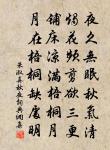 夜久無眠秋氣清
燭花頻剪欲三更
鋪床涼滿梧桐月
月在梧桐缺處明
朱淑真秋夜詞典網